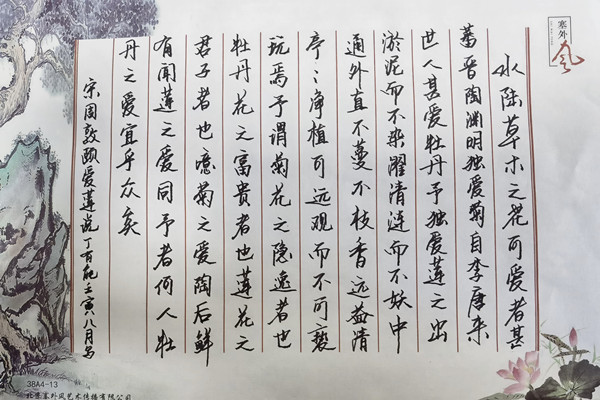 塞外风
水陆草木之花可爱者甚
蕃晋陶渊明独爱菊自李唐来
世人甚爱牡丹予独爱莲之出
淤泥而不染濯清涟而不妖中
通外直不蔓不枝香远益清
亭〻净植可远观而不可亵
玩焉予谓菊花之隐逸者也
牡丹花之富贵者也莲花之
君子者也噫菊之爱陶后鲜
有闻莲之爱同予者何人牡
丹之爱宜乎众矣
宋周敦颐爱莲说 丁 壬寅八月写
38A4-13
北京塞外风艺术传播有限公司